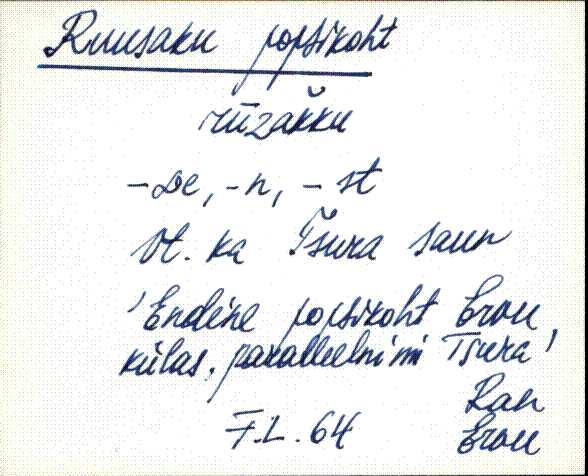 Ruusaku popsikoht
rūzakku
-De, -n, -st
Vt. ka Tsura saun
'Endine popsikoht
külas, parallelnimi Tsura'
Ran
F.L. 64